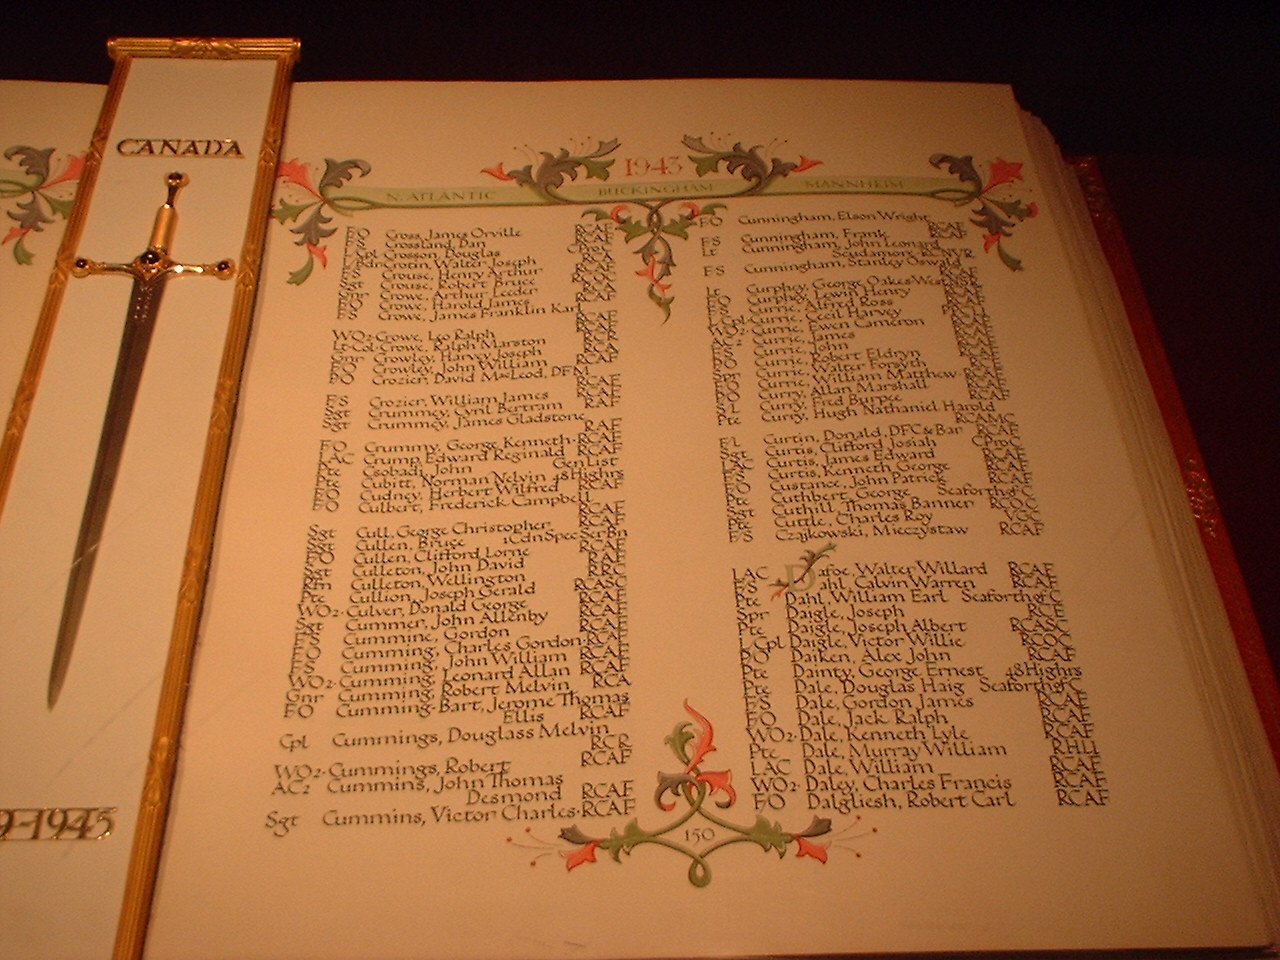 CANADA
9-1945
1943
N. ATLANTIC BUCKINGHAM MANNHEIM
FO Cross, James Orville RCAF
FS Crossland, Dan RCAF
L Cpl Crosson, Douglas CProC
L Bdr Crotin, Walter Joseph
FS Crouse, Henry Arthur
Sgt Crouse, Robert Bruce
Gnr Crowe, Arthur Leeder RCA
FO Crowe, Harold James RCAF
FS Crowe, James Franklin Karl
RCAF
WO2 Crowe, Leo Ralph RCAF
Lt-Col Crowe, Ralph Marston RCR
Gnr Crowley, Harvey Joseph RCA
FO Crowley, John William RCAF
PO Crozier, David MacLeod, DFM
RCAF
FS Crozier, William James RCAF
Sgt Crummey, Cyril Bertram RAF
Sgt Crummey, James Gladstone
RAF
FO Crummy, George Kenneth RCAF
LAC Crump, Edward Reginald RCAF
Pte Csobadi, John GenList
Pte Cubitt, Norman Nelvin 48Highrs
FO Cudney, Herbert Wilfred RCAF
FO Culbert, Frederick Campbell
RCAF
Sgt Cull, George Christopher RCAF
Sgt Cullen, Bruce 1CdnSpecSerBn
FO Cullen, Clifford Lorne RCAF
Sgt Culleton, John David RAF
Rfn Culleton, Wellington RRC
Pte Cullion, Joseph Gerald RCASC
WO2 Culver, Donald George RCAF
Sgt Cummer, John Allenby RCAF
FS Cummine, Gordon RCAF
FO Cumming, Charles Gordon RCAF
FS Cumming, John William RCAF
WO2 Cumming, Leonard Allan RCAF
Gnr Cumming, Robert Melvin RCA
FO Cumming-Bart, Jerome Thomas
Ellis RCAF
Cpl Cummings, Douglass Melvin
RCR
WO2 Cummings, Robert RCAF
AC2 Cummins, John Thomas
Desmond RCAF
Sgt Cummins, Victor Charles RCAF
FO Cunningham, Elson Wright
RCAF
FS Cunningham, Frank RCAF
Lt Cunningham, John Leonard
Scudamore RCNVR
FS Cunningham, Stanley Oswald
RCAF
Lt Curphey, George Oakes West
Curphey, Lewin Henry
Currie, Alfred Ross
L Cpl Currie, Cecil Harvey
WO2 Currie, Ewen Cameron
AC2 Currie, James
FS Currie, John
FO Currie, Robert Eldryn
Currie, Walter Forsyth
Spr Currie, William Matthew
FO Curry, Allan Marshall RCAF
SL Curry, Fred Burpee RCAF
Pte Curry, Hugh Nathaniel Harold
RCAMC
F/L Curtin, Donald, DFC&Bar RCAF
Sgt Curtis, Clifford Josiah CProC
LAC Curtis, James Edward RCAF
FS Curtis, Kenneth George RCAF
FO Custance, John Patrick RCAF
Pte Cuthbert, George SeaforthofC
Sgt Cuthill, Thomas Banner RCOC
Pte Cuttle, Charles Roy VGC
F/S Czajkowski, Mieczystaw RCAF
LAC Dafoe, Walter Willard RCAF
FS Dahl, Calvin Warren RCAF
Pte Dahl, William Earl SeaforthofC
Spr Daigle, Joseph RCE
Pte Daigle, Joseph Albert RCASC
L Cpl Daigle, Victor Willie RCOC
PO Daiken, Alex John RCAF
Pte Dainty, George Ernest 48Highrs
Pte Dale, Douglas Haig SeaforthofC
F/S Dale, Gordon James RCAF
FO Dale, Jack Ralph RCAF
WO2 Dale, Kenneth Lyle RCAF
Pte Dale, Murray William RHLI
LAC Dale, William RCAF
WO2 Daley, Charles Francis RCAF
FO Dalgliesh, Robert Carl RCAF
150